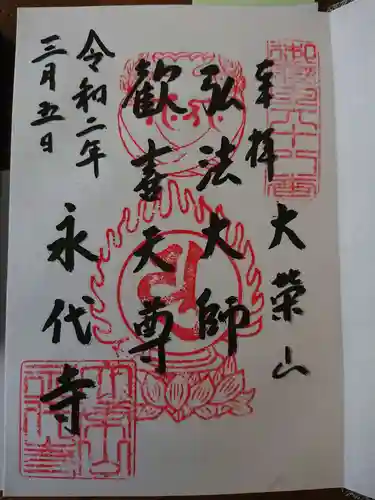 奉拝
大榮山
弘法大師
歓喜天尊
令和二年
三月五日
永代寺